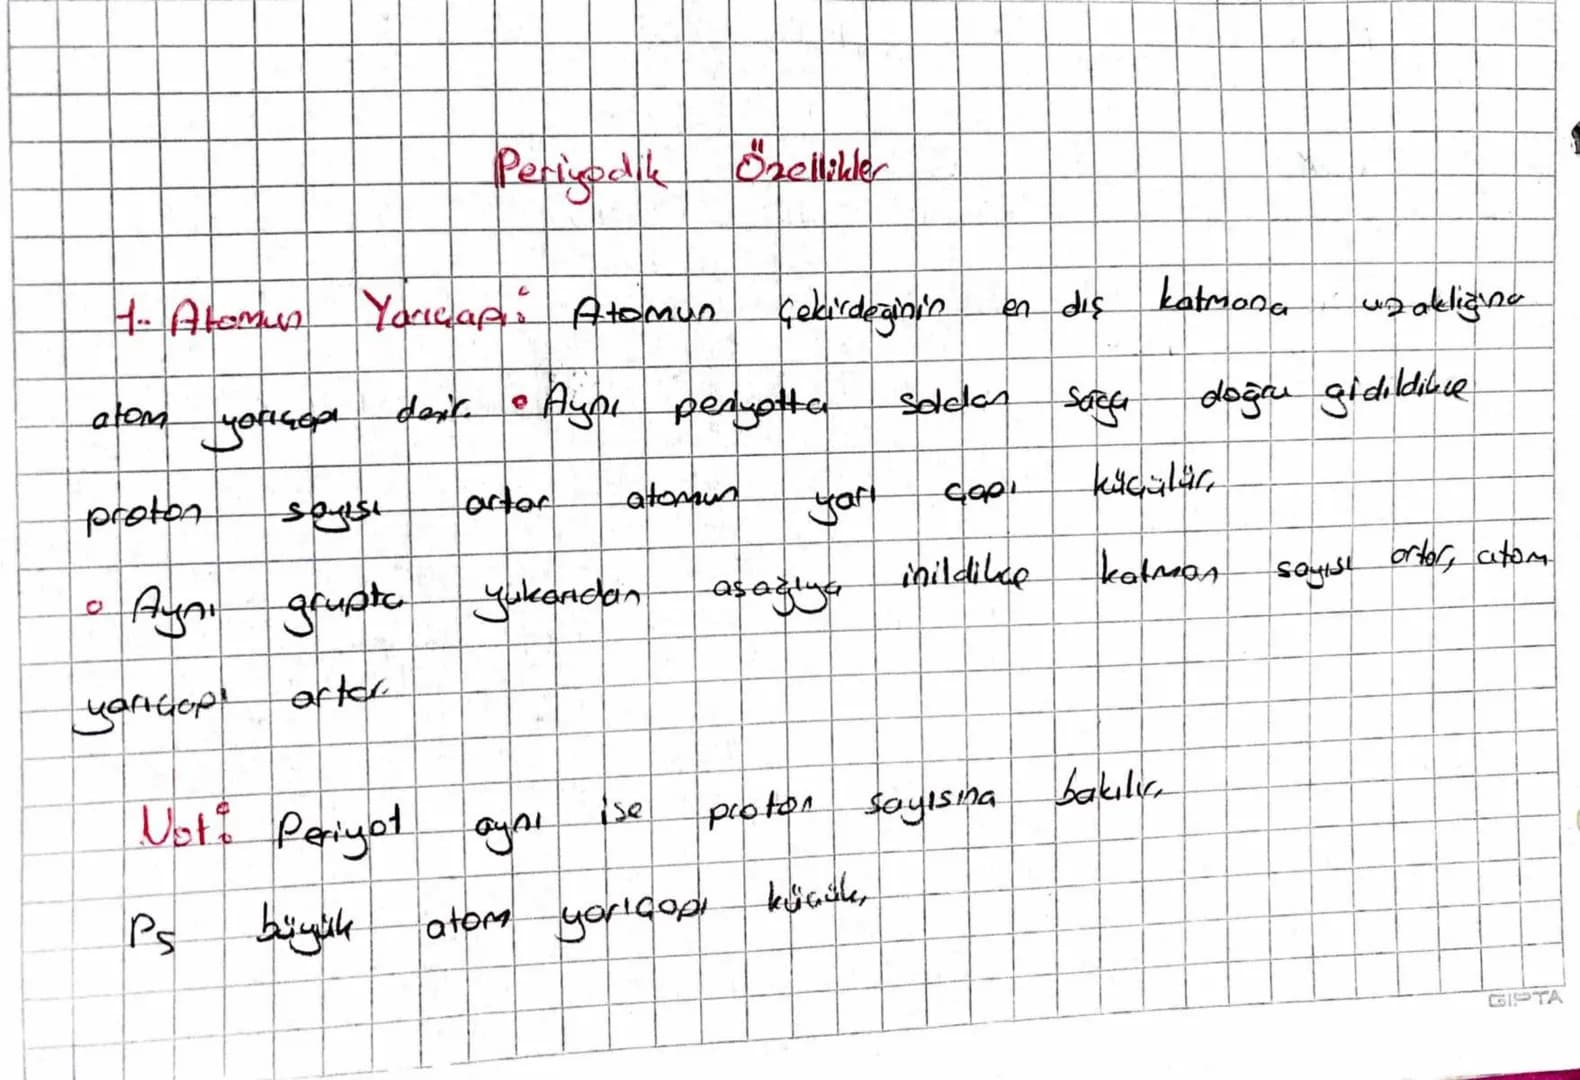 Periyodik Özellikler
1. Atomun Yarıçapı: Atomun Çekirdeğinin en dış katmana uzaklığına
atom yarıçapı denir. • Aynı periyotta soldan sağa doğru gidildikçe
proton sayısı artar atomun yarı çapı küçülür.
• Aynı grupta yukarıdan aşağıya inildikçe katman sayısı artar, atom
yarıçapı artar.
Not: Periyot aynı ise proton sayısına bakılır.
Ps büyük atom yarıçapı küçük.
GIPTA